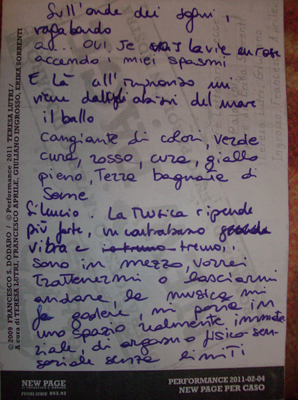 Sull'onde dei sogni,
vagabondo
au... oui, je vois la vie en rose
accendo i miei spasmi
E là all'improvviso mi
viene dagli abissi del mare
il ballo
cangiante di colori, verde
cura, rosso, cura, giallo
pieno, Terra bagnare di
Seme
Silenzio. La musica riprende
più forte, un contrabasso
vibra e tremo,
sono in mezzo, vorrei
trattenermi o lasciarmi
andare, la musica mi
fa godere, mi porta in
uno spazio realmente immate
riale, di orgasmo fisico-sen
soriale senza limiti
©2009 FRANCESCO S. DÒDARO / © Performance 2011 TERESA LUTRI /
A cura di TERESA LUTRI, FRANCESCO APRILE, GIULIANO INGROSSO, ERIKA SORRENTI
NEW PAGE
PERFORMANCE 2011-02-04
NEW PAGE PER CASO